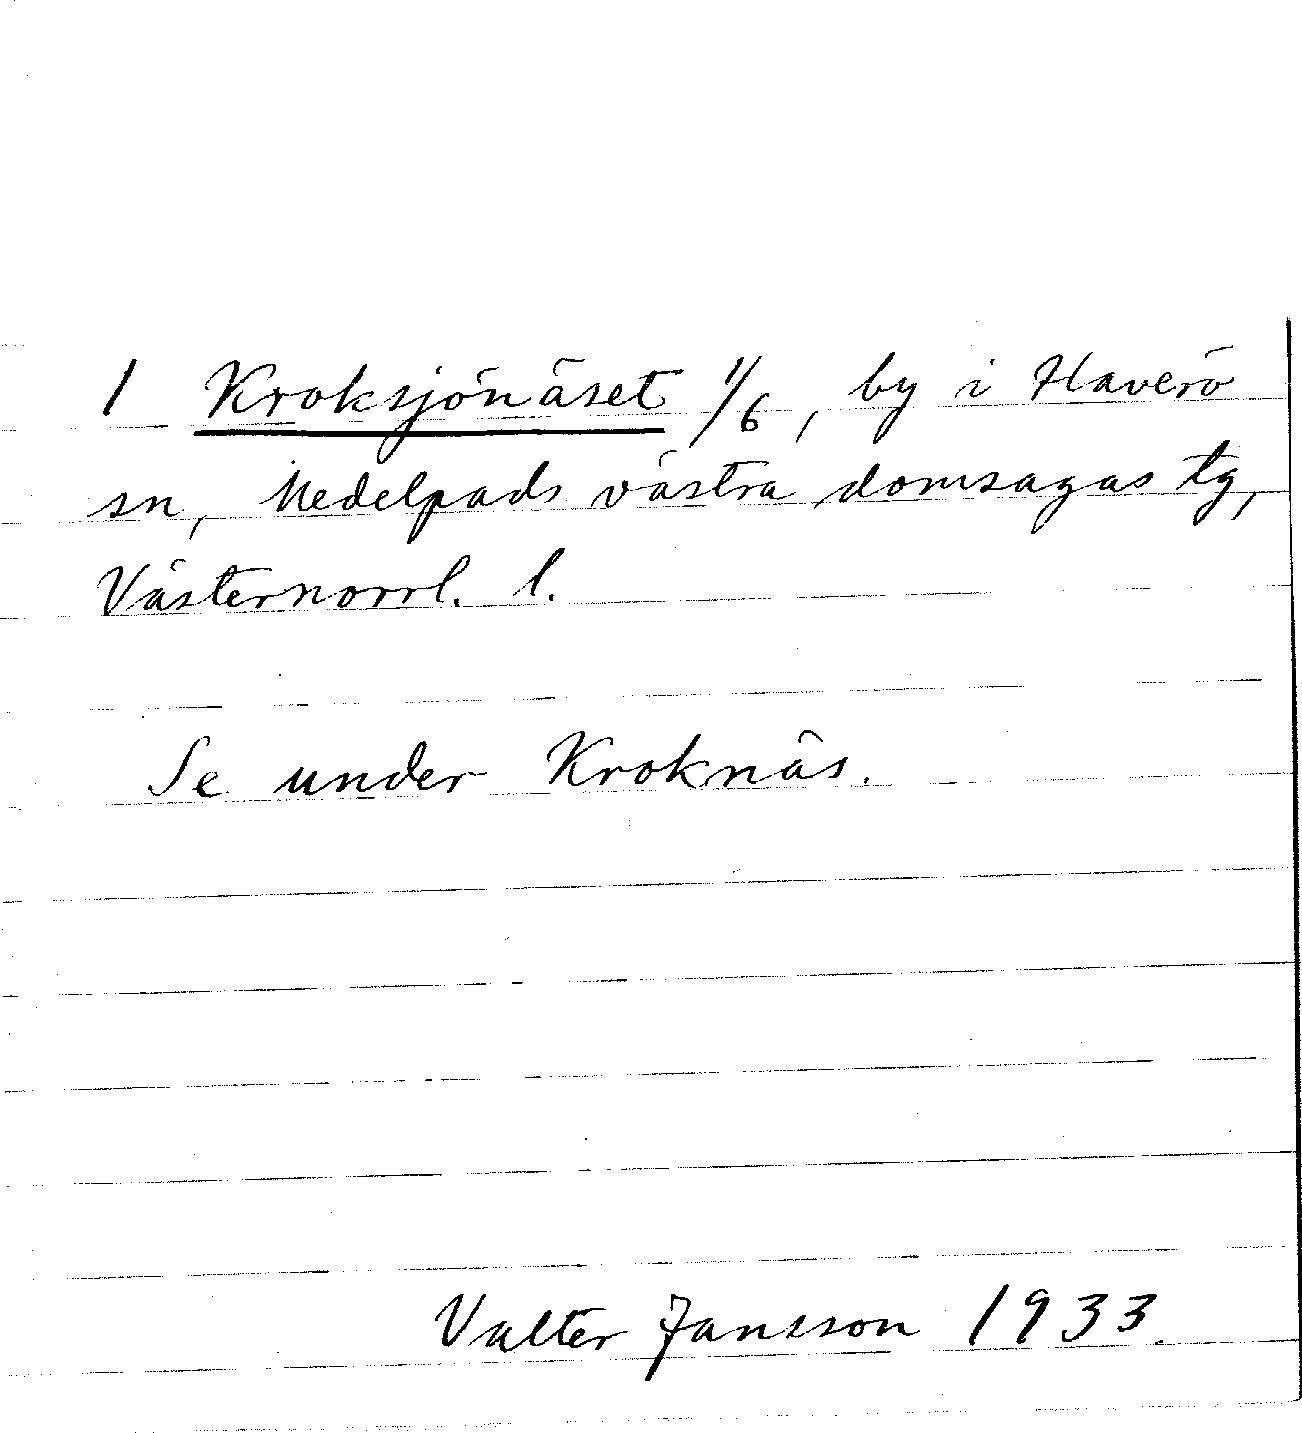 1 Kroksjönäset 1/6, by i Haverö
sn, Medelpads västra domsagas tg,
Västernorrl. l.
Se under Kroknäs.
Valter Jansson 1933.